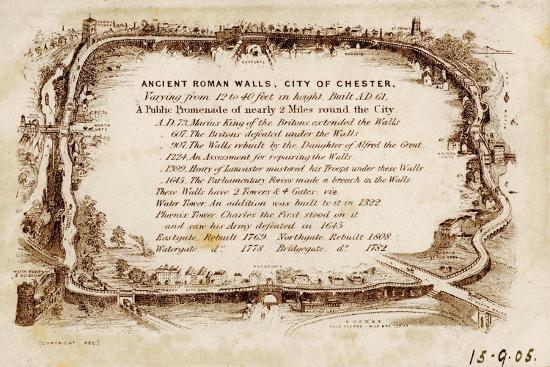 EASTGATE
ANCIENT ROMAN WALLS, CITY OF CHESTER,
Varying from 12 to 40 feet in height, Built A.D. 61,
A Public Promenade of nearly 2 Miles round the City
A.D. 73, Marius King of the Britons extended the Walls
- 607, The Britons defeated under the Walls
- 907, The Walls rebuilt by the Daughter of Alfred the Great.
- 1224 An Assessment for repairing the Walls
- 1399, Henry of Lancaster mustered his Troops under these Walls
- 1645, The Parliamentary Forces made a breach in the Walls.
These Walls have 2 Towers & 4 Gates. viz
Water Tower. An addition was built to it in 1322
Phœnix Tower. Charles the First stood on it
and saw his Army defeated in 1645
Eastgate, Rebuilt 1769, Northgate, Rebuilt 1808
Watergate, do. 1778 Bridgegate, do. 1782
WATER TOWER
& MUSEUM
WATERGATE
ROODEE
RACE COURSE
[COPYRIGHT REG.]
15-9-05.